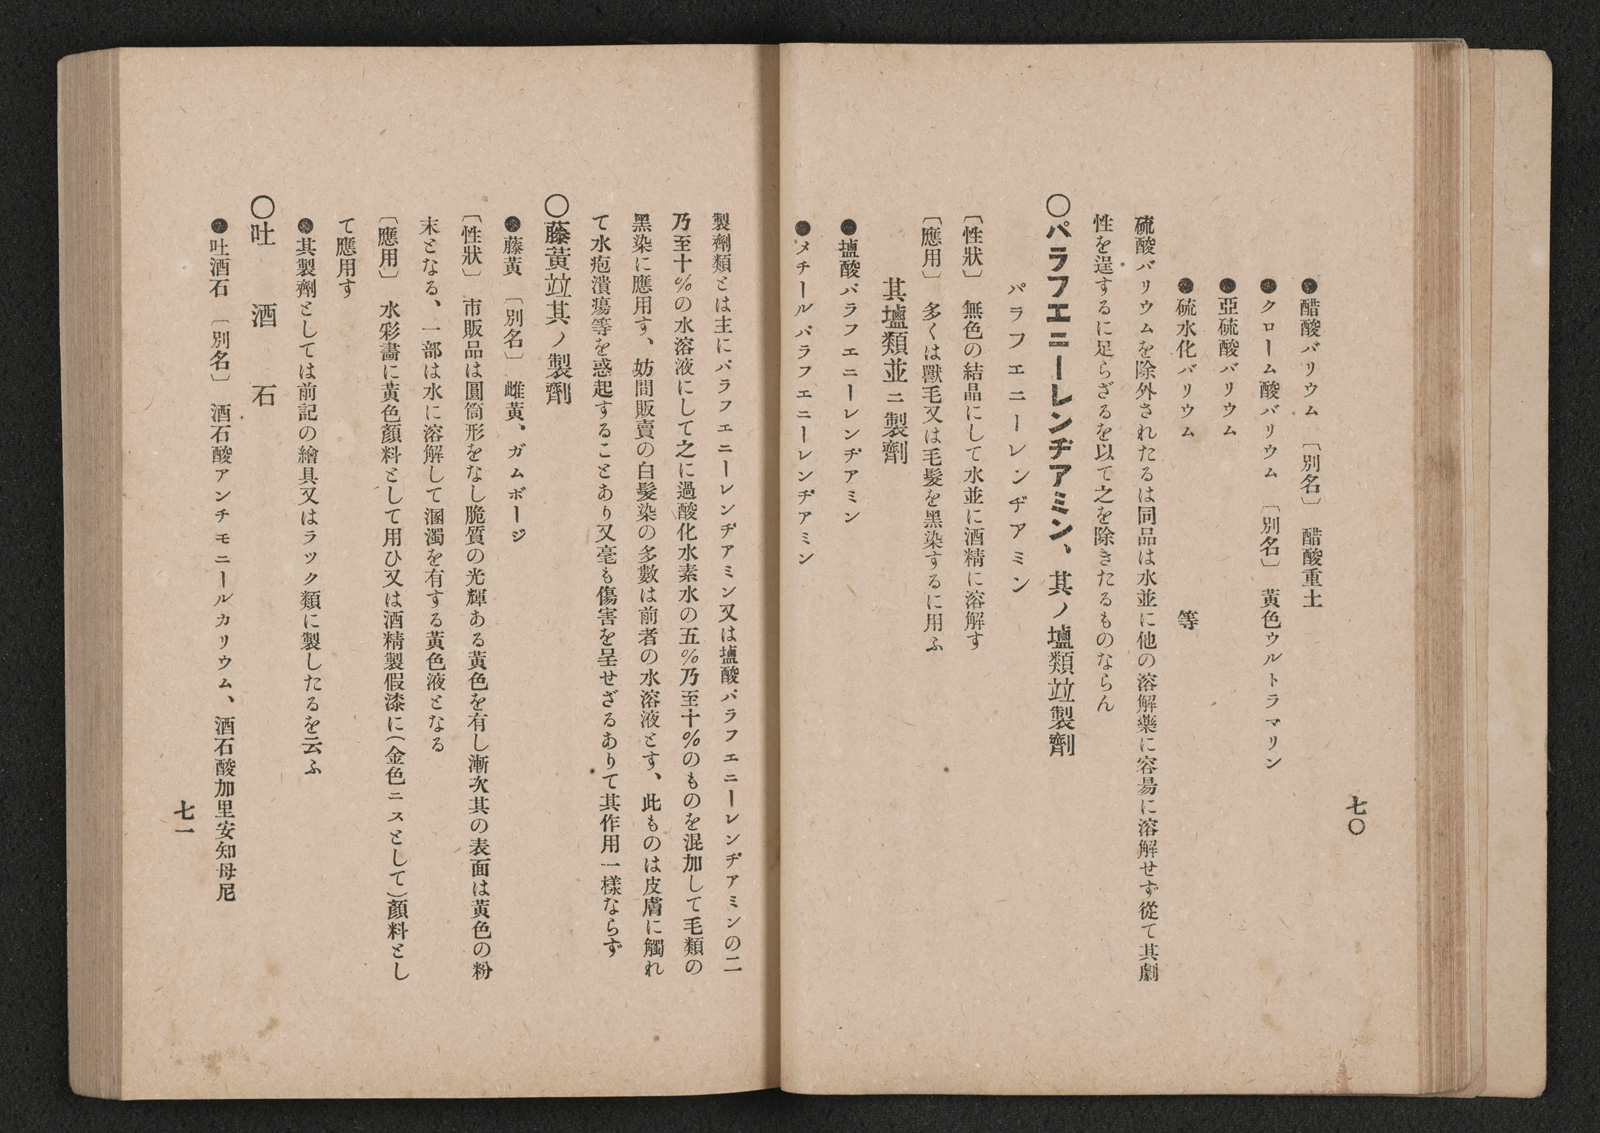 七〇
●醋酸バリウム　〔別名〕　醋酸重土
●クローム酸バリウム　〔別名〕　黃色ウルトラマリン
●亞硫酸バリウム
●硫水化バリウム　　　　等
硫酸バリウムを除外されたるは同品は水並に他の溶解藥に容易に溶解せず從て其劇
性を逞するに足らざるを以て之を除きたるものならん
〇パラフエニーレンヂアミン、其ノ壚類竝製劑
パラフエニーレンヂアミン
〔性狀〕　無色の結晶にして水並に酒精に溶解す
〔應用〕　多くは獸毛又は毛髮を黑染するに用ふ
其壚類並ニ製劑
●塩酸パラフエニーレンヂアミン
●メチールパラフエニーレンヂアミン
製劑類とは主にパラフエニーレンヂアミン又は塩酸パラフエニーレンヂアミンの二
乃至十％の水溶液にして之に過酸化水素水の五％乃至十％のものを混加して毛類の
黑染に應用す、妨間販賣の白髮染の多數は前者の水溶液とす、此ものは皮膚に觸れ
て水疱潰瘍等を惑起することあり又毫も傷害を呈せざるありて其作用一樣ならず
〇藤黃竝其ノ製劑
●藤黃　〔別名〕　雌黃、ガムボージ
〔性狀〕　市販品は圓筒形をなし脆質の光輝ある黃色を有し漸次其の表面は黃色の粉
末となる、一部は水に溶解して溷濁を有する黃色液となる
〔應用〕　水彩畵に黃色顏料として用ひ又は酒精製假漆に（金色ニスとして）顏料とし
て應用す
●其製劑としては前記の繪具又はラック類に製したるを云ふ
〇吐　酒　石
●吐酒石　〔別名〕　酒石酸アンチモニールカリウム、酒石酸加里安知母尼
七一